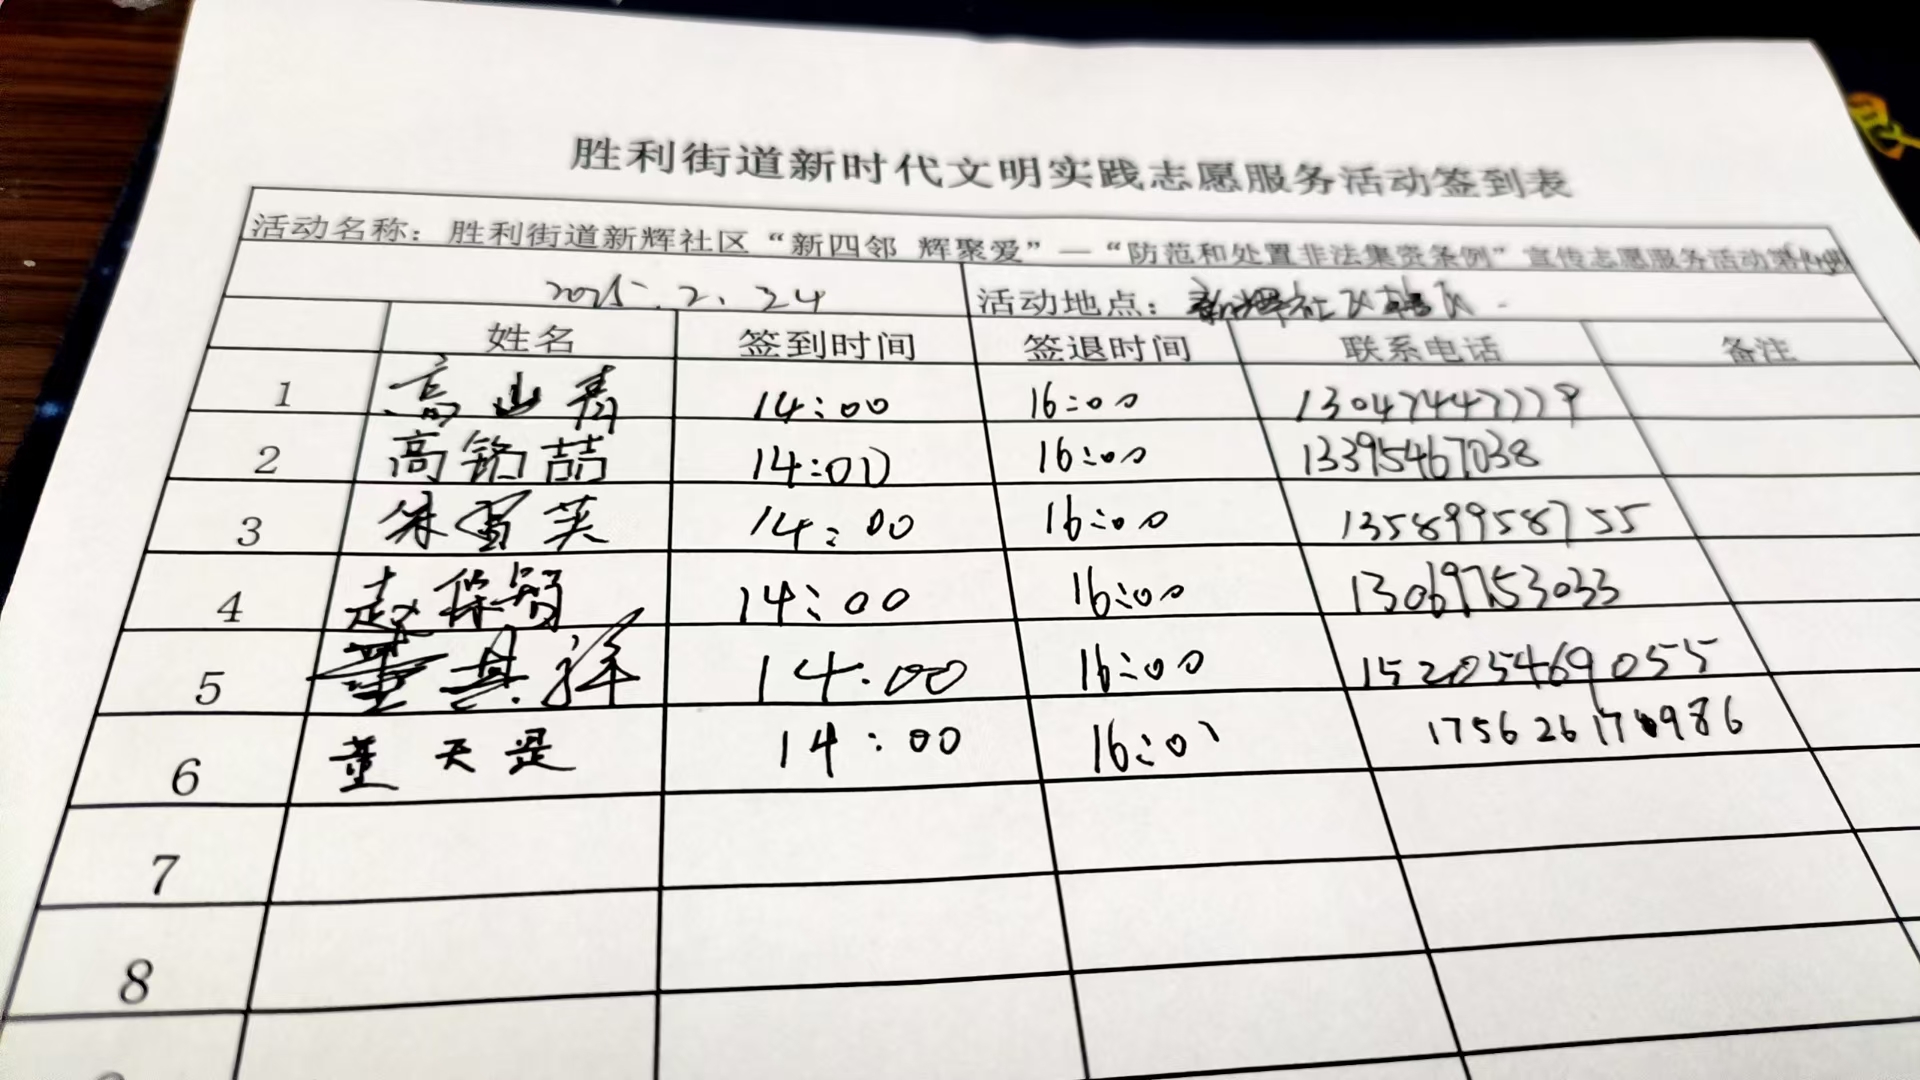 胜利街道新时代文明实践志愿服务活动签到表
活动名称：胜利街道新辉社区“新四邻 辉聚爱”—“防范和处置非法集资条例”宣传志愿服务活动
2025.2.24 活动地点：新辉社区辖区
姓名 签到时间 签退时间 联系电话 备注
1 高山青 14:00 16:00 13047447779
2 高铭喆 14:00 16:00 13395467038
3 朱雪芙 14:00 16:00 13589958755
4 赵保智 14:00 16:00 13069753033
5 董其祥 14:00 16:00 15205469055
6 董天是 14:00 16:00 175626170986
7
8